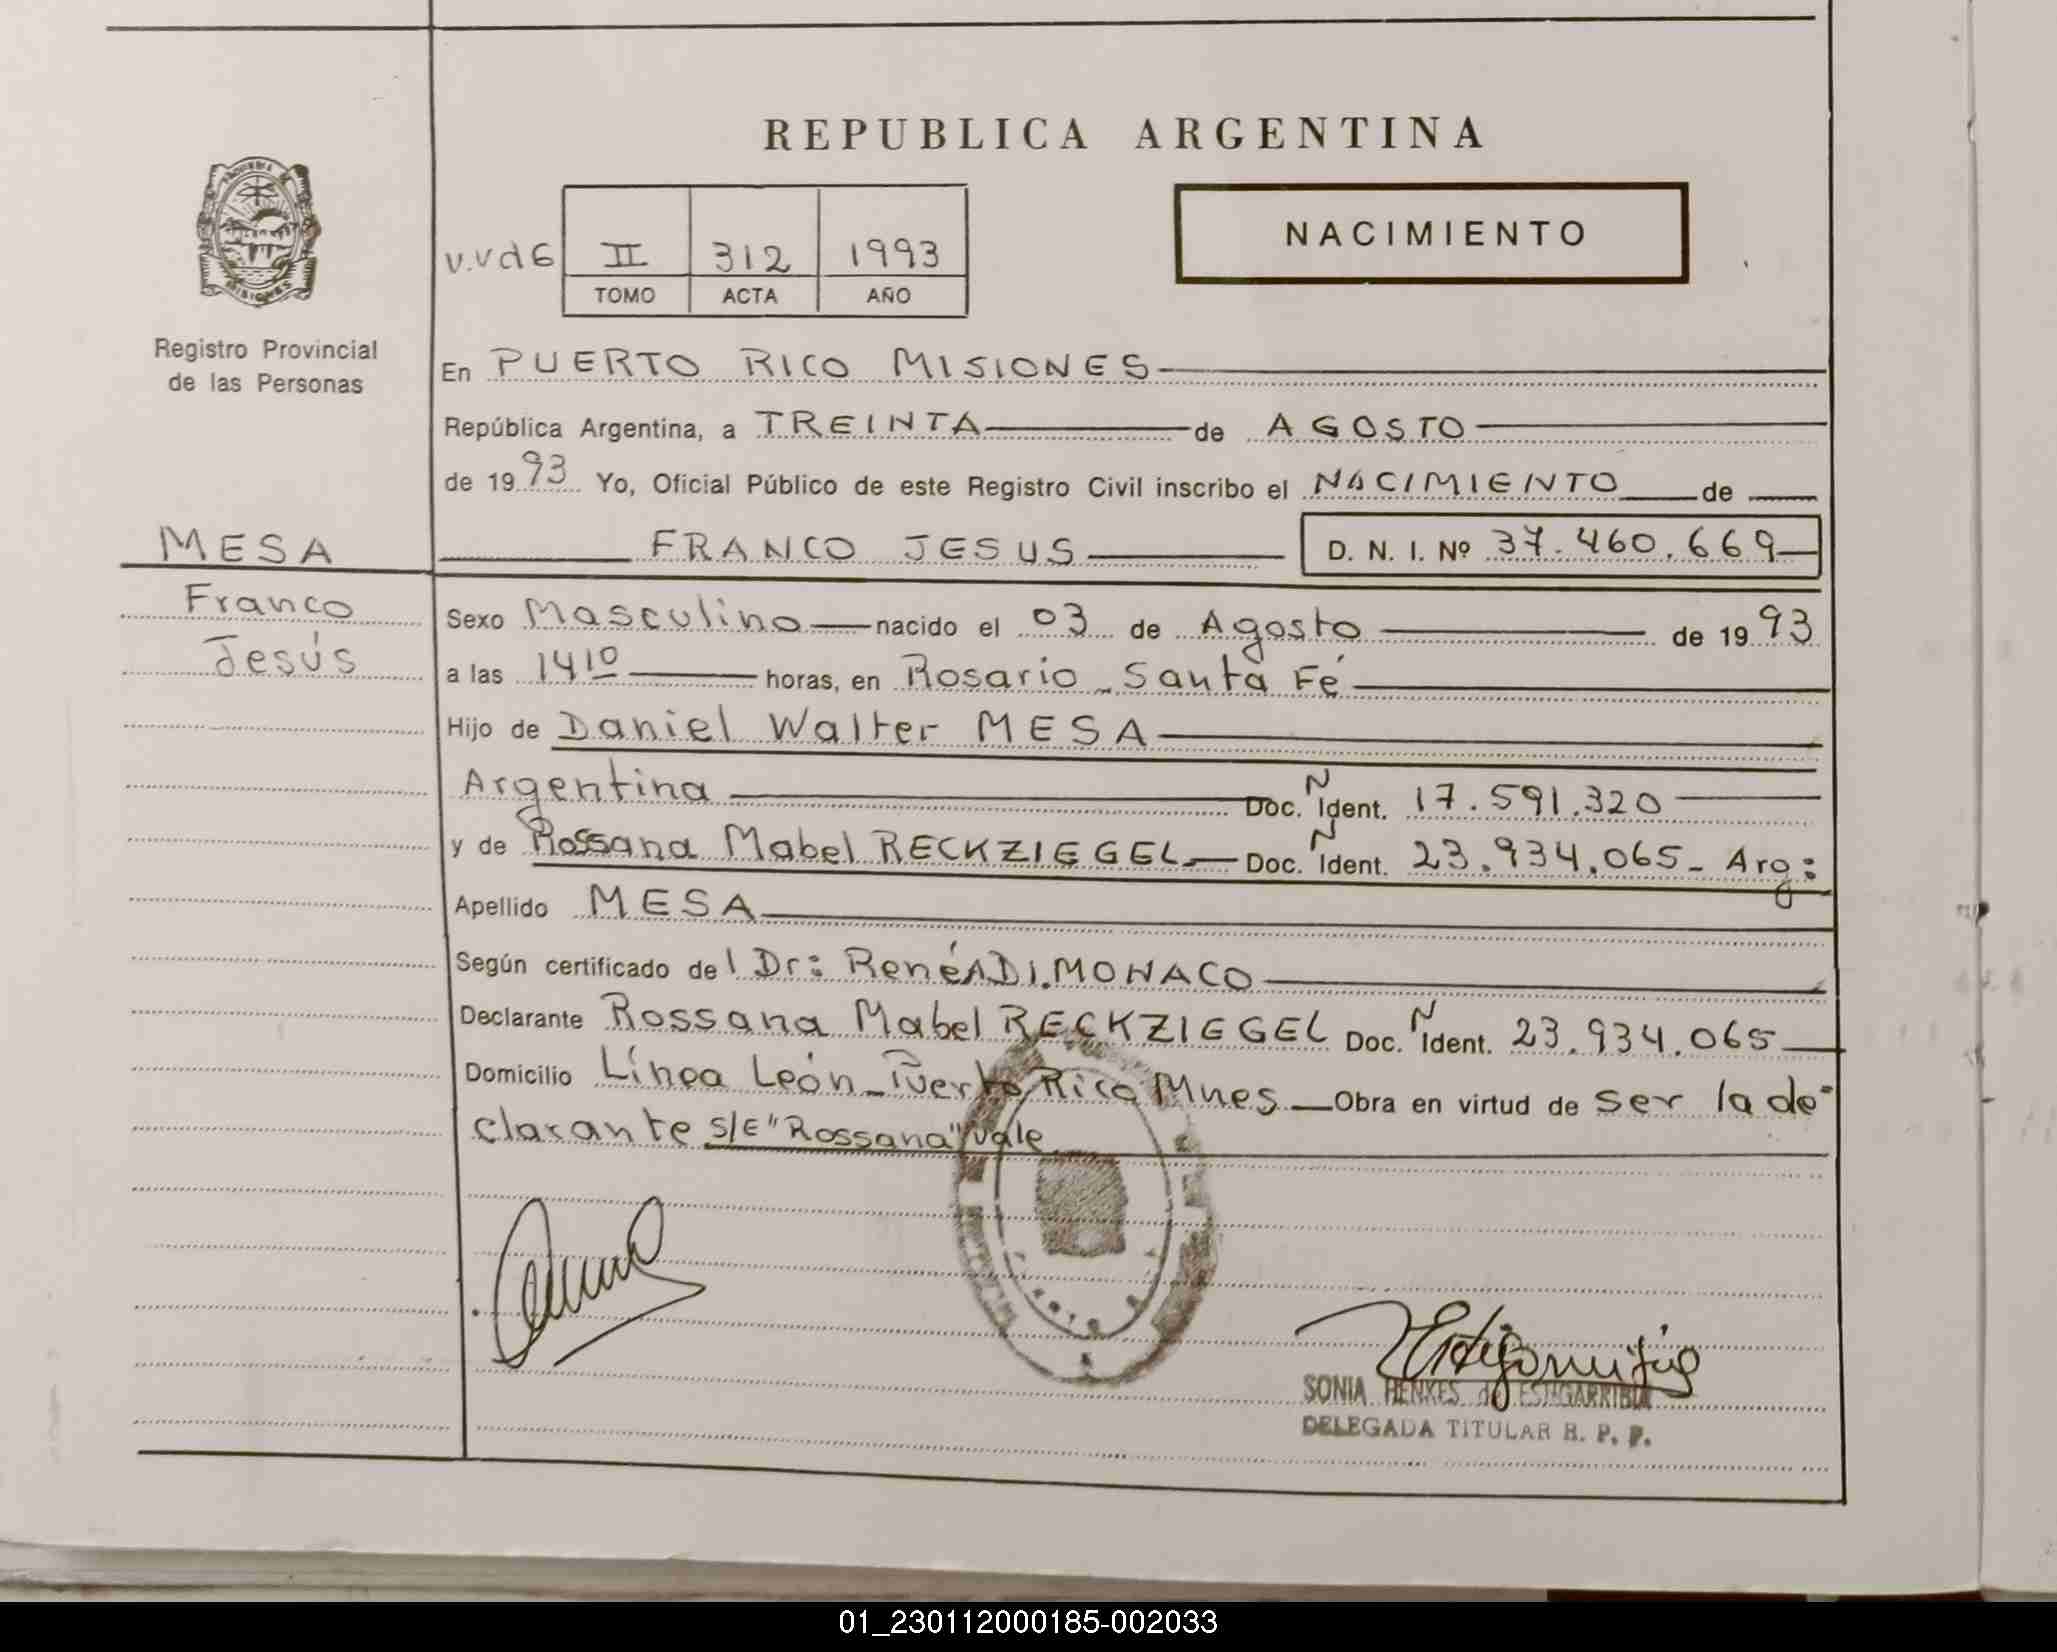 REPUBLICA ARGENTINA
NACIMIENTO
v.vd6 II 312 1993
TOMO ACTA AÑO
PROVINCIA DE
MISIONES
Registro Provincial
de las Personas
En PUERTO RICO MISIONES
República Argentina, a TREINTA de AGOSTO
de 1993 Yo, Oficial Público de este Registro Civil inscribo el NACIMIENTO de
MESA
FRANCO JESUS D. N. I. Nº 37.460.669
Franco
Jesús
Sexo Masculino nacido el 03 de Agosto de 1993
a las 14 10 horas, en Rosario - Santa Fé
Hijo de Daniel Walter MESA
Argentina Doc. N Ident. 17.591.320
y de Rossana Mabel RECKZIEGEL Doc. N Ident. 23.934.065- Arg:
Apellido MESA
Según certificado del Dr: René A DI.MONACO
Declarante Rossana Mabel RECKZIEGEL Doc. N Ident. 23.934.065
Domicilio Línea León - Puerto Rico Mnes Obra en virtud de ser la de=
clarante S/E "Rossana" Vale
SONIA HENKES de ESTIGARRIBIA
DELEGADA TITULAR R. P. P.
01_230112000185-002033